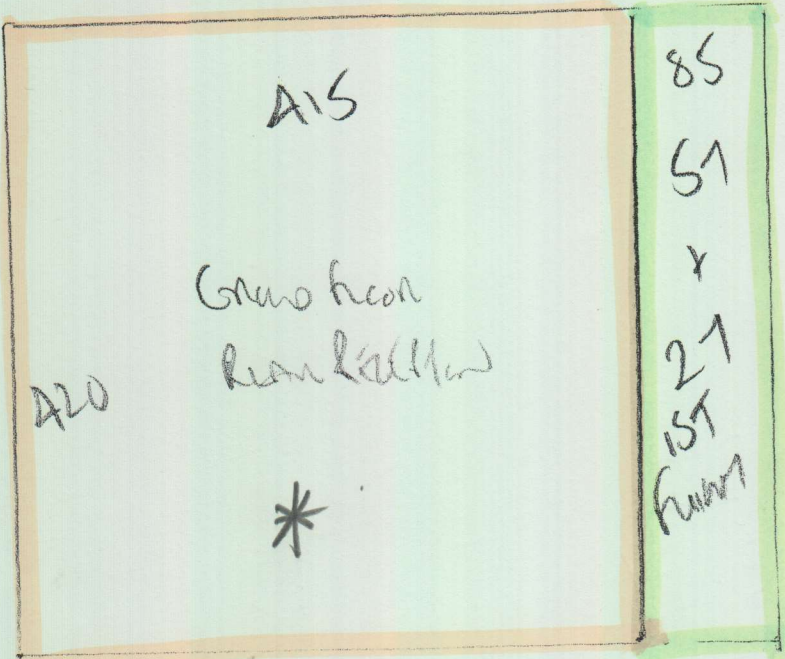 A15
Ground Floor
Rear
A20
*
85
51
x
21
1ST
Floor